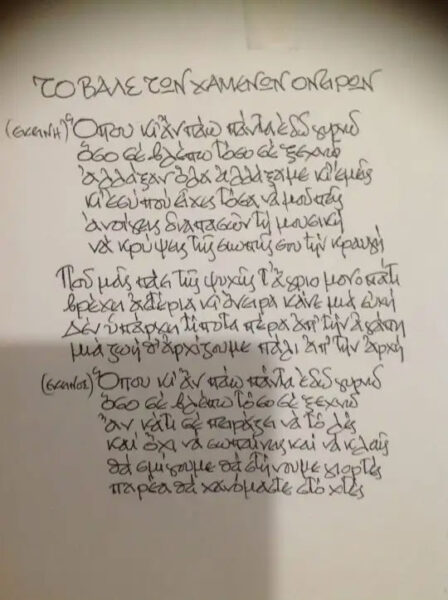 ΤΟ ΒΑΛΣ ΤΩΝ ΧΑΜΕΝΩΝ ΟΝΕΙΡΩΝ
(ΕΚΕΙΝΗ) Ὅπου κι ἂν πάω πάντα ἐδῶ γυρνῶ
ὅσο σὲ βλέπω τόσο σὲ ξεχνῶ
ἀλλάξαν ὅλα ἀλλάξαμε κι ἐμεῖς
κι ἐσὺ ποὺ εἶχες τόσα νὰ μοῦ πεῖς
ἀνοίγεις διαπασῶν τὴ μουσικὴ
νὰ κρύψεις τῆς σιωπῆς σου τὴν κραυγὴ
Ποῦ μᾶς πάει τῆς ψυχῆς τ' ἄγριο μονοπάτι
βρέχει ἀστέρια κι ὄνειρα κάνε μιὰ εὐχὴ
Δὲν ὑπάρχει τίποτα πέρα ἀπ' τὴν ἀγάπη
μιὰ ζωὴ θ' ἀρχίζουμε πάλι ἀπ' τὴν ἀρχὴ
(ΕΚΕΙΝΟΣ) Ὅπου κι ἂν πάω πάντα ἐδῶ γυρνῶ
ὅσο σὲ βλέπω τόσο σὲ ξεχνῶ
ἂν κάτι σὲ πειράζει νὰ τὸ λὲς
καὶ ὄχι νὰ σωπαίνεις καὶ νὰ κλαῖς
θὰ σμίγουμε θὰ στήνουμε γιορτὲς
παρέα θὰ χανόμαστε στὸ χτὲς